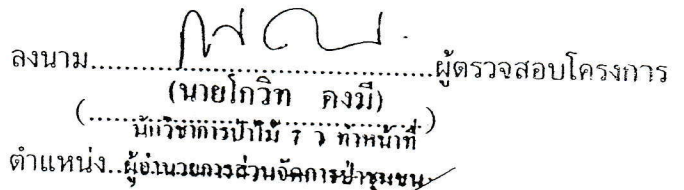 ลงนาม..........................................ผู้ตรวจสอบโครงการ
(นายโกวิท คงมี)
(..........................................)
นักวิชาการป่าไม้ 7 ว ทำหน้าที่
ตำแหน่ง..ผู้อำนวยการส่วนจัดการป่าชุมชน